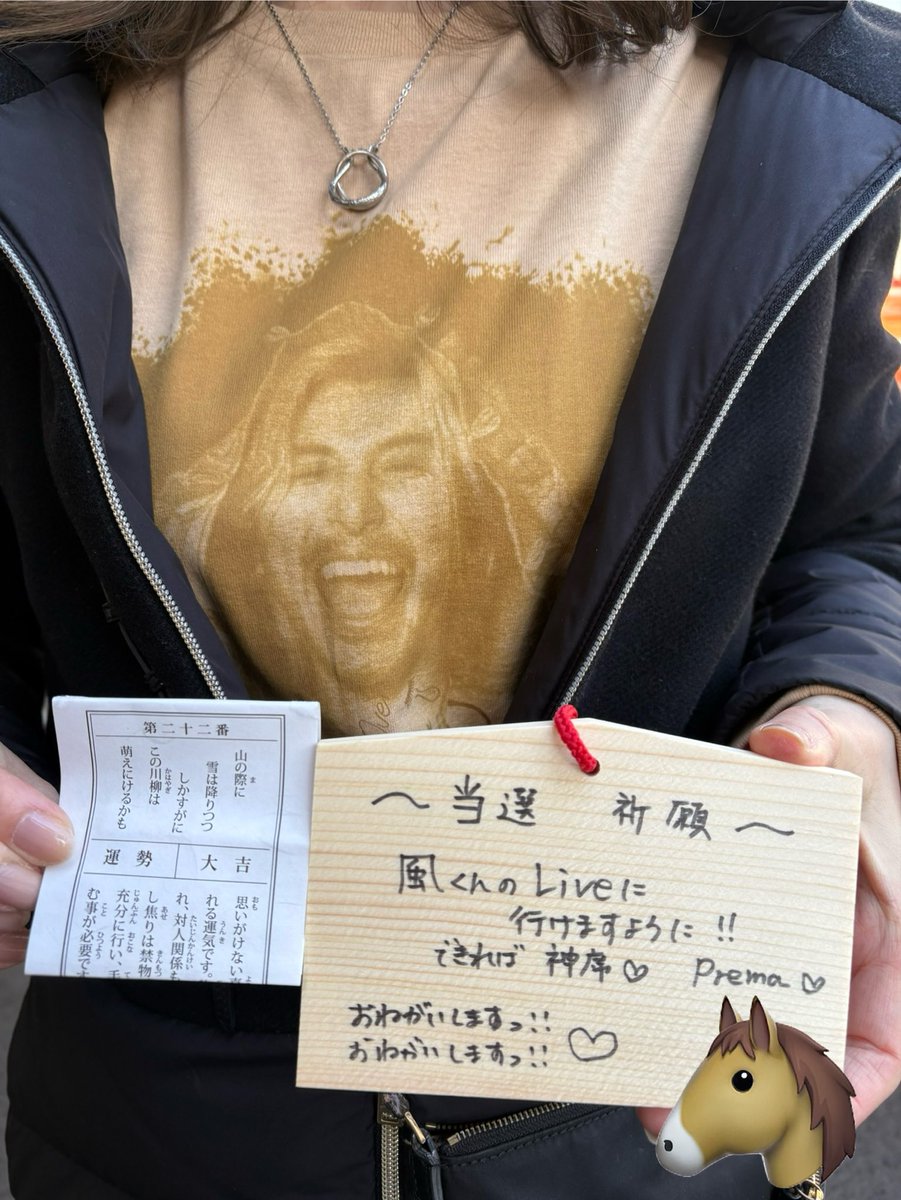 第二十二番
山の際に
雪は降りつつ
しかすがに
この川柳は
萌えにけるかも
運勢
大吉
思いがけない
れる運気です。
れ、対人関係も
し焦りは禁物
充分に行い、手
む事が必要です
〜当選 祈願〜
風くんのLiveに
行けますように!!
できれば 神席♡ Prema♡
おねがいしますっ!!
おねがいしますっ!!♡